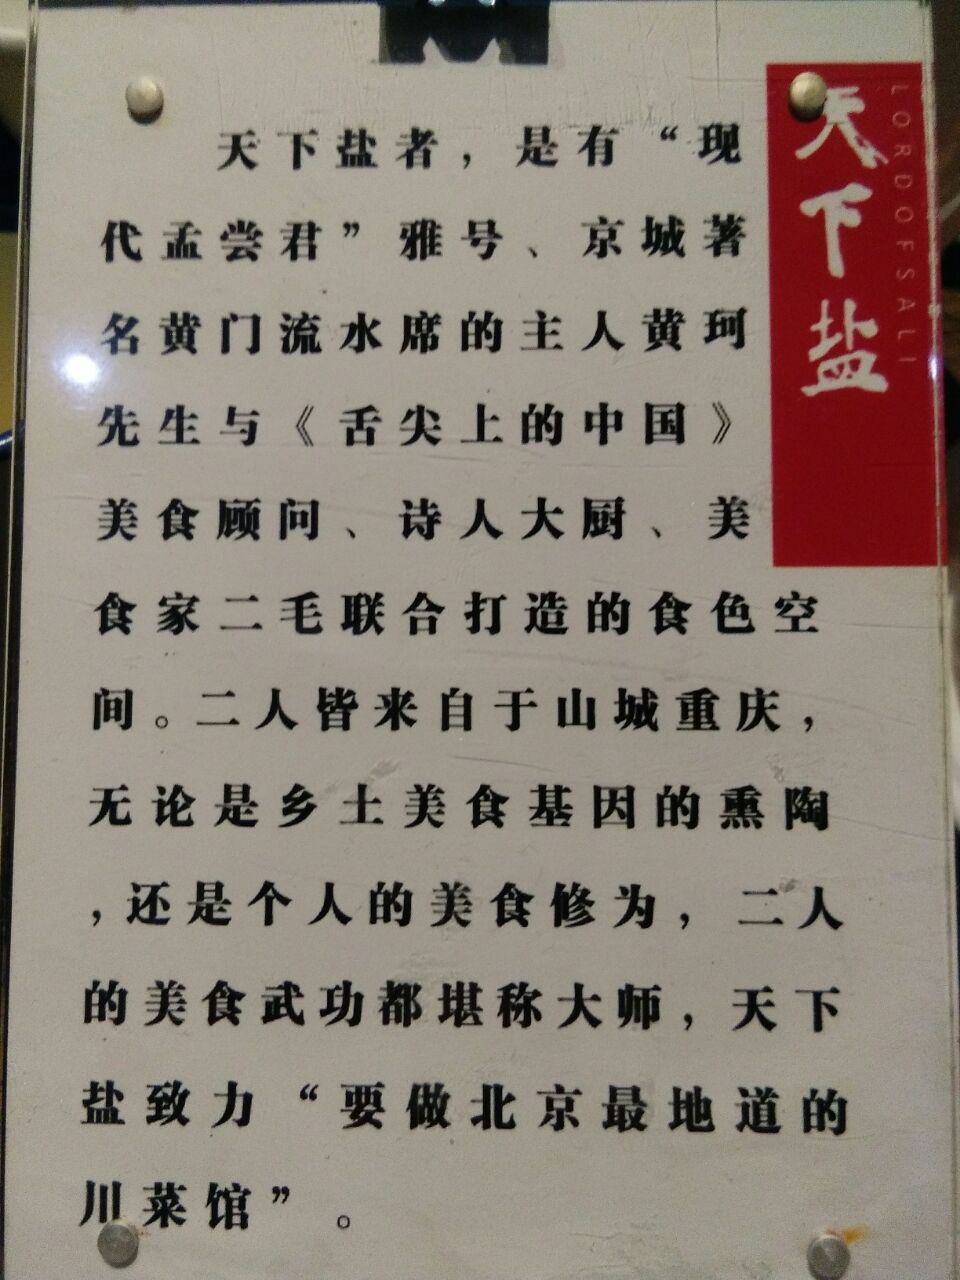 天下盐者，是有“现
代孟尝君”雅号、京城著
名黄门流水席的主人黄珂
先生与《舌尖上的中国》
美食顾问、诗人大厨、美
食家二毛联合打造的食色空
间。二人皆来自于山城重庆，
无论是乡土美食基因的熏陶
，还是个人的美食修为，二人
的美食武功都堪称大师，天下
盐致力“要做北京最地道的
川菜馆”。
天下盐
LORDOFSALI